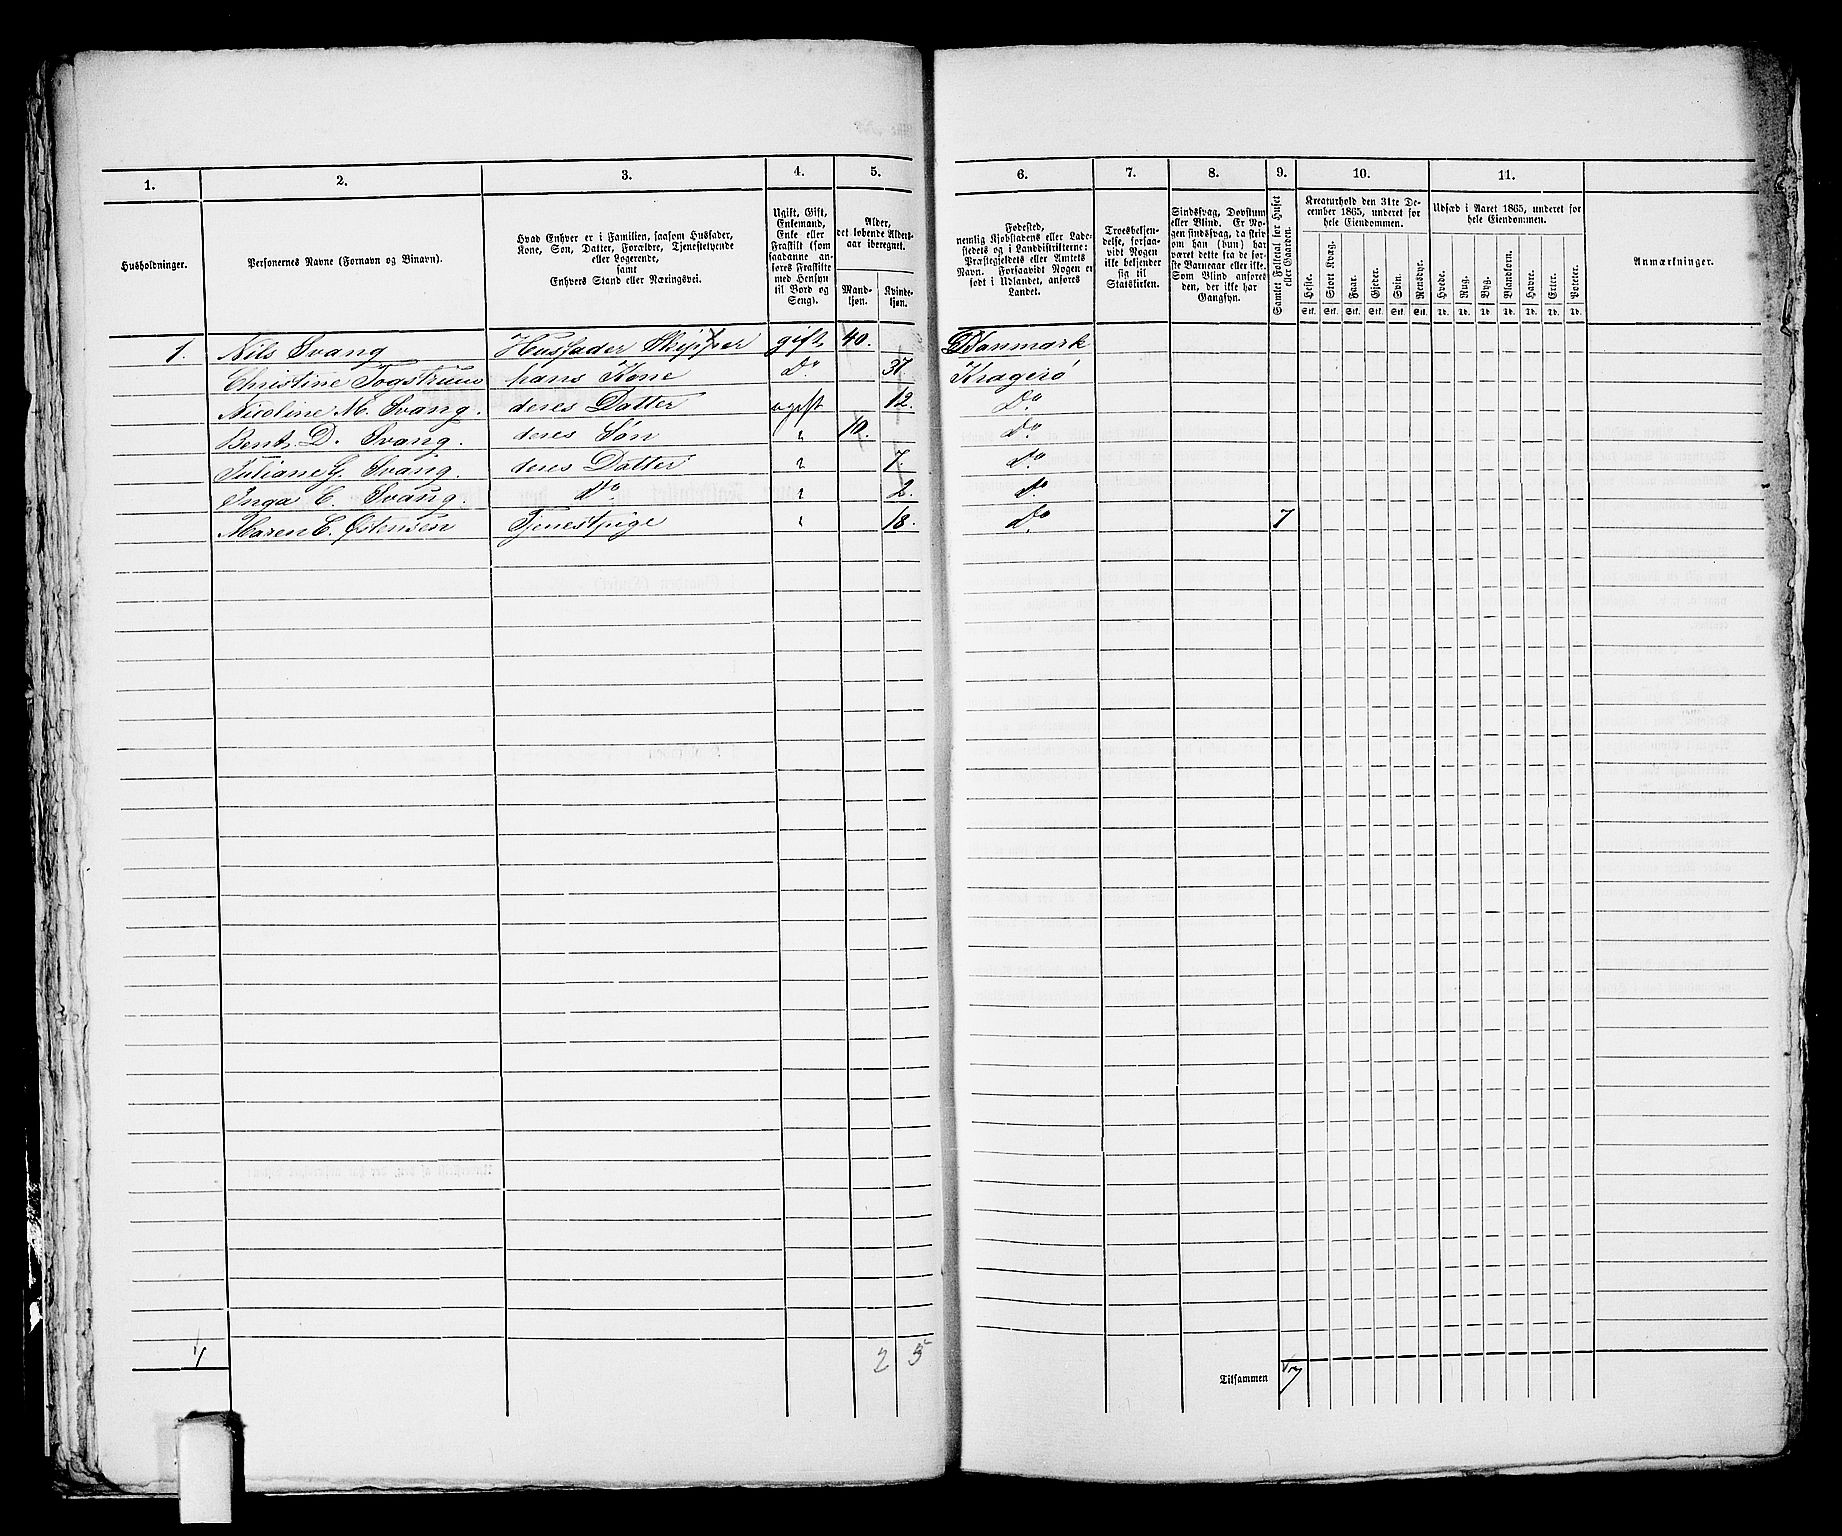 1. 2. 3. 4. 5. 6. 7. 8. 9. 10. 11.
Husholdninger.
Personernes Navne (Fornavn og Binavn).
Hvad Enhver er i Familien, saasom Husfader,
Kone, Søn, Datter, Forældre, Tjenestetyende
eller Logerende,
samt
Enhvers Stand eller Næringsvei.
Ugift, Gift,
Enkemand,
Enke eller
Fraskilt (som
saadanne an-
føres Fraskilte
med Hensyn
til Bord og
Seng).
Alder,
det løbende Alders-
aar iberegnet.
Mand-
kjøn.
Kvinde-
kjøn.
Fødested,
nemlig Kjøbstadens eller Lade-
stedets og i Landdistrikterne:
Præstegjeldets eller Amtets
Navn. Forsaavidt Nogen er
født i Udlandet, anføres
Landet.
Troesbekjen-
delse, forsaa-
vidt Nogen
ikke bekjender
sig til
Statskirken.
Sindssvag, Døvstum
eller Blind. Er No-
gen sindssvag, da skriv
om han (hun) har
været dette fra de før-
ste Barneaar eller ikke.
Som Blind anføres
den, der ikke har
Gangsyn.
Samlet Folketal for Huset
eller Gaarden.
Kreaturhold den 31te De-
cember 1865, underet for
hele Eiendommen.
Heste. Stort Kvæg. Faar. Gjeder. Svin. Rensdyr.
Stk. Stk. Stk. Stk. Stk. Stk.
Udsæd i Aaret 1865, underet for
hele Eiendommen.
Hvede. Rug. Byg. Blandkorn. Havre. Erter. Poteter.
Td. Td. Td. Td. Td. Td. Td.
Anmærkninger.
1. Nils Svang Husfader Skipper gift 40. Danmark
Christine Togstrum hans Kone Do 37 Kragerø
Nicoline M. Svang. deres Datter ugift 12. Do
Bent D. Svang. deres Søn " 10. Do
Juliane G. Svang. deres Datter " 7. Do
Inga C. Svang. Do " 2. Do
Maren C. Østensen Tjenestpige " 18. Do 7
1 2 5
Tilsammen 7